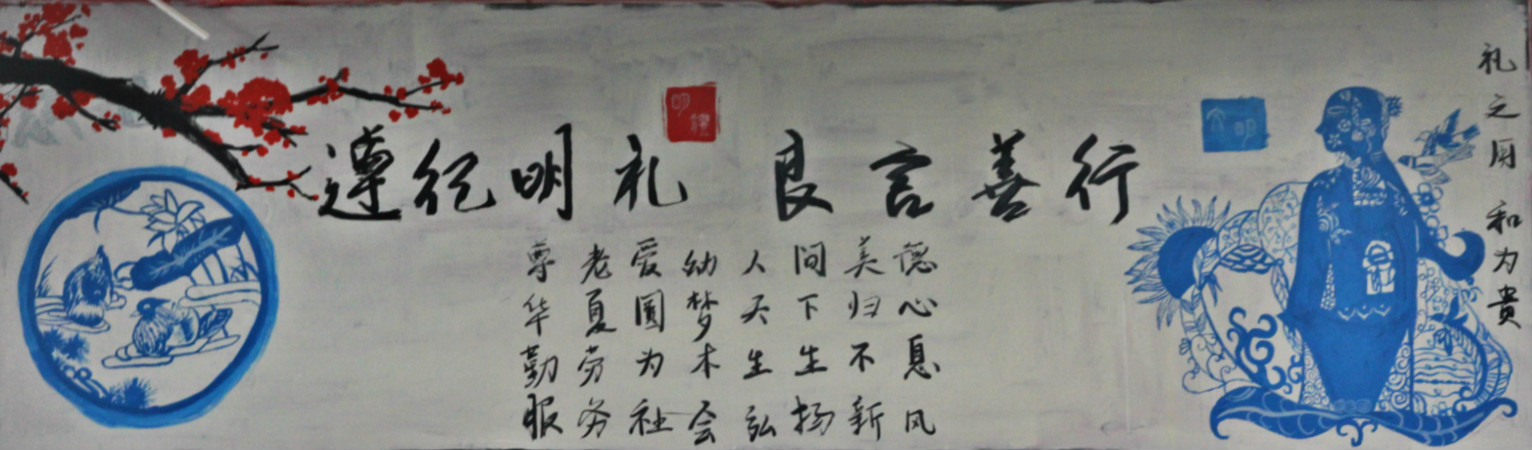 遵纪明礼 良言善行
尊老爱幼人间美德
华夏圆梦天下归心
勤劳为本生生不息
服务社会弘扬新风
礼之用 和为贵